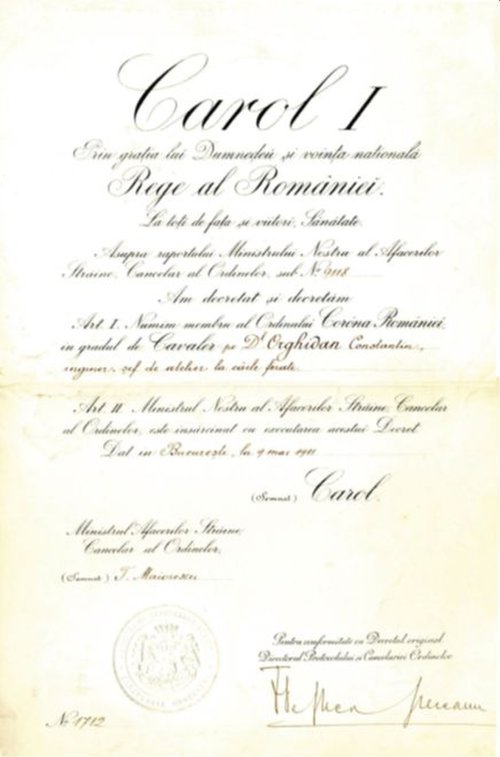 Carol I
Prin grația lui Dumnedeŭ și voința națională
Rege al României.
La toți de față și viitori, Sănătate.
Asupra raportului Ministrului Nostru al Afacerilor
Străine, Cancelar al Ordinelor, sub No 9118
Am decretat și decretăm
Art I. Numim membru al Ordinului Coróna României
in gradul de Cavaler pe Dl Orghidan Constantin,
inginer, șef de atelier la căile ferate.
Art II. Ministrul Nostru al Afacerilor Străine, Cancelar
al Ordinelor, este însărcinat cu executarea acestui Decret.
Dat in București, la 9 mai 1911
(Semnat) Carol.
Ministrul Afacerilor Străine,
Cancelar al Ordinelor,
(Semnat) T. Maiorescu
Pentru conformitate cu Decretul original
Directorul Protocolului si Cancelariei Ordinelor
No 1712